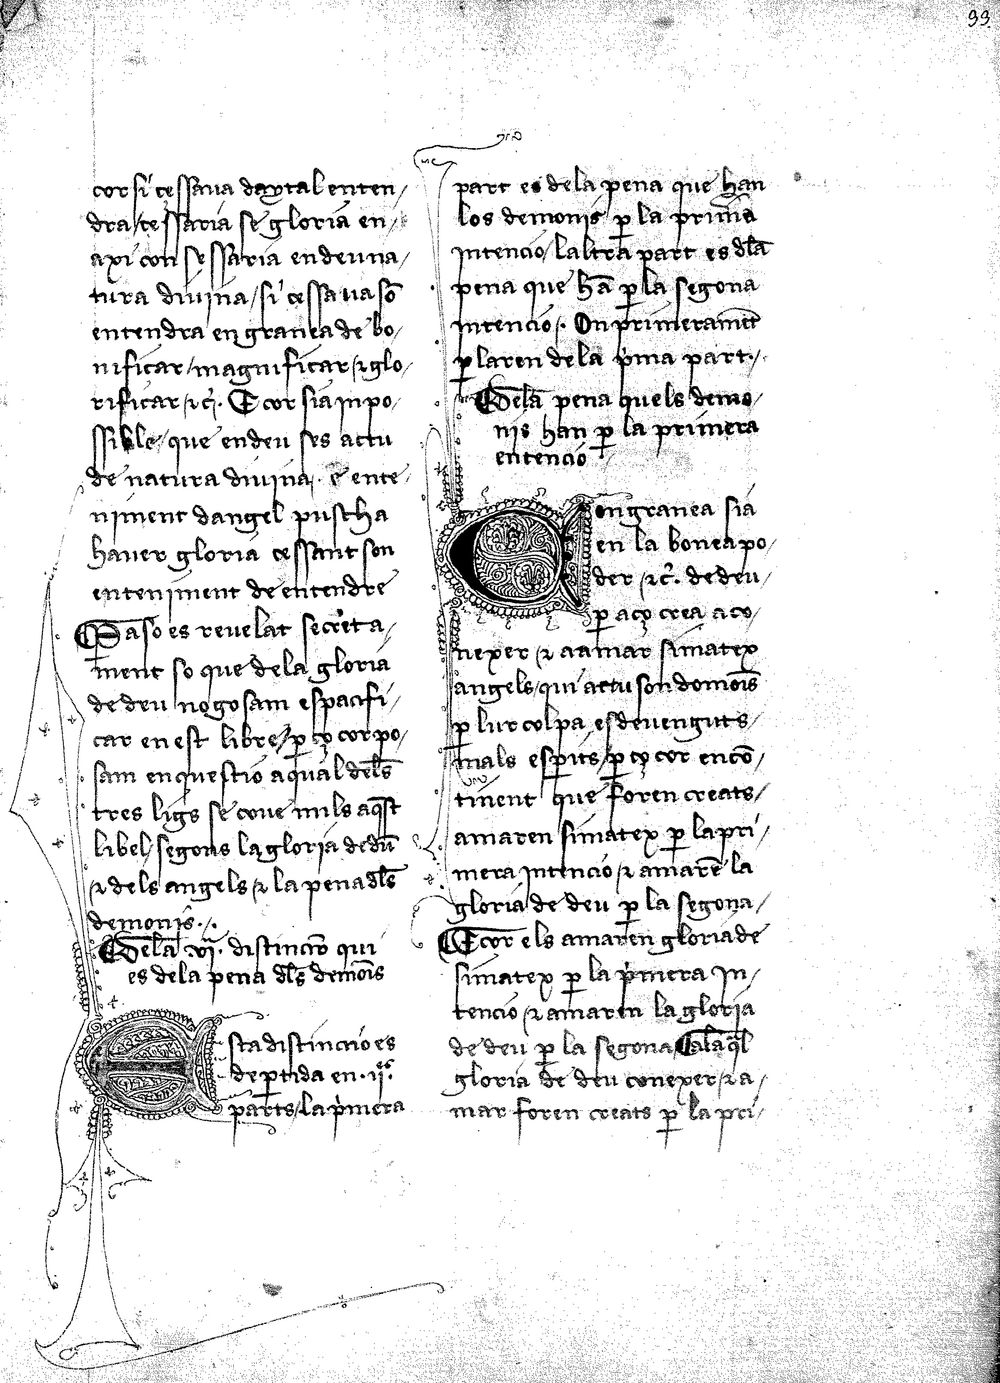 99
cor si cessaua daytal enten/
dra/cessaria sé gloria en/
axi con sessaria en deu na/
tura diuina/si cessaua sō
entendra en granea de bo/
nificar/magnificar/⁊ glo/
rificar/⁊c̄. E cor sia inpo/
ssible/que en deu ses actu
de natura diuina. e ente/
niment dangel puscha
hauer gloria cessant son
enteniment de entendre
Saso es reuelat secreta/
ment so que de la gloria
de deu no gosam espacifi/
car en est libre/ꝑ ço cor po/
sam en questio a qual dels̄
tres ligs se coue mils aq̄st
libel/segons la gloria de dū
⁊ dels angels/⁊ la pena dls̄
demonis.
De la .vj. distinccio qui
es de la pena dls̄ demōis
Esta distinccio es
de ꝑtida en .ij.
parts/la p̓mera
part es de la pena que han
los demonis ꝑ la prim̄a
intencio/laltra part es dl̄a
pena que hā ꝑ la segona
intencio. On primeramēt
ꝑlaren de la p̓ma part.
De la pena quels demo/
nis han ꝑ la primera
entencio
Con granea sia
en la bonea po/
der ⁊c̄. de deu/
ꝑ aço crea a co/
nexer ⁊ a amar si matex
angels/qui actu son domōis
ꝑ lur colpa/es deuenguts/
mals esꝑits/ꝑ ço cor encō/
tinent que foren creats/
amaren si matex ꝑ la pri/
mera intencio/⁊ amarē la
gloria de deu ꝑ la segona/
E cor els amaren gloria de
si matex ꝑ la p̓mera in/
tencio/⁊ amaren la gloria
de deu ꝑ la segona/a la q̄l
gloria de deu conexer/⁊ a/
mar foren creats ꝑ la pri/